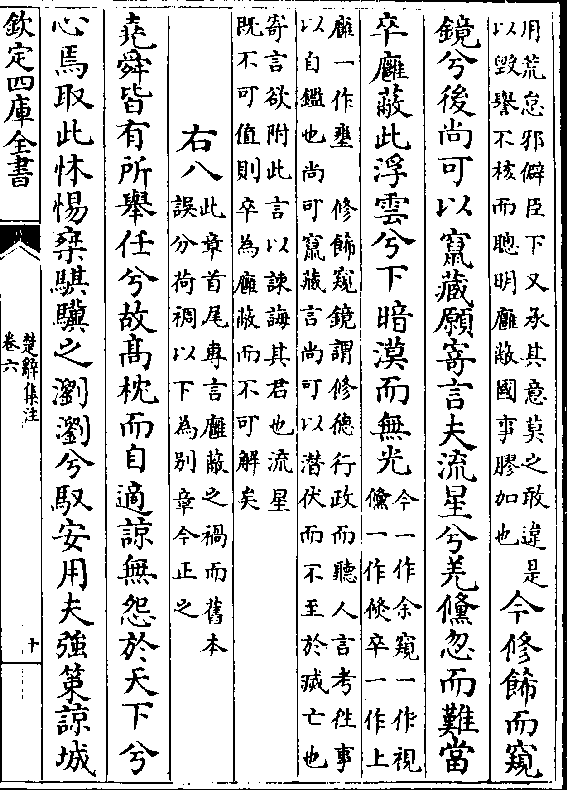 用荒怠邪僻臣下又承其意莫之敢違是
以毀譽不核而聰明廱蔽國事膠加也
今修飾而窺
鏡兮後尚可以竄藏願寄言夫流星兮羌儵忽而難當
卒廱蔽此浮雲兮下暗漠而無光
今一作余窺一作視
儵一作倏卒一作上
廱一作壅 修飾窺鏡謂修德行政而聽人言考徃事
以自鑑也尚可竄藏言尚可以潛伏而不至於滅亡也
寄言欲附此言以諫誨其君也流星
既不可值則卒為廱蔽而不可解矣
右八
此章首尾專言廱蔽之禍而舊本
誤分荷裯以下為別章今正之
堯舜皆有所舉任兮故高枕而自適諒無怨於天下兮
心焉取此怵惕椉騏驥之瀏瀏兮馭安用夫強策諒城
欽定四庫全書
楚辭集注
卷六
十